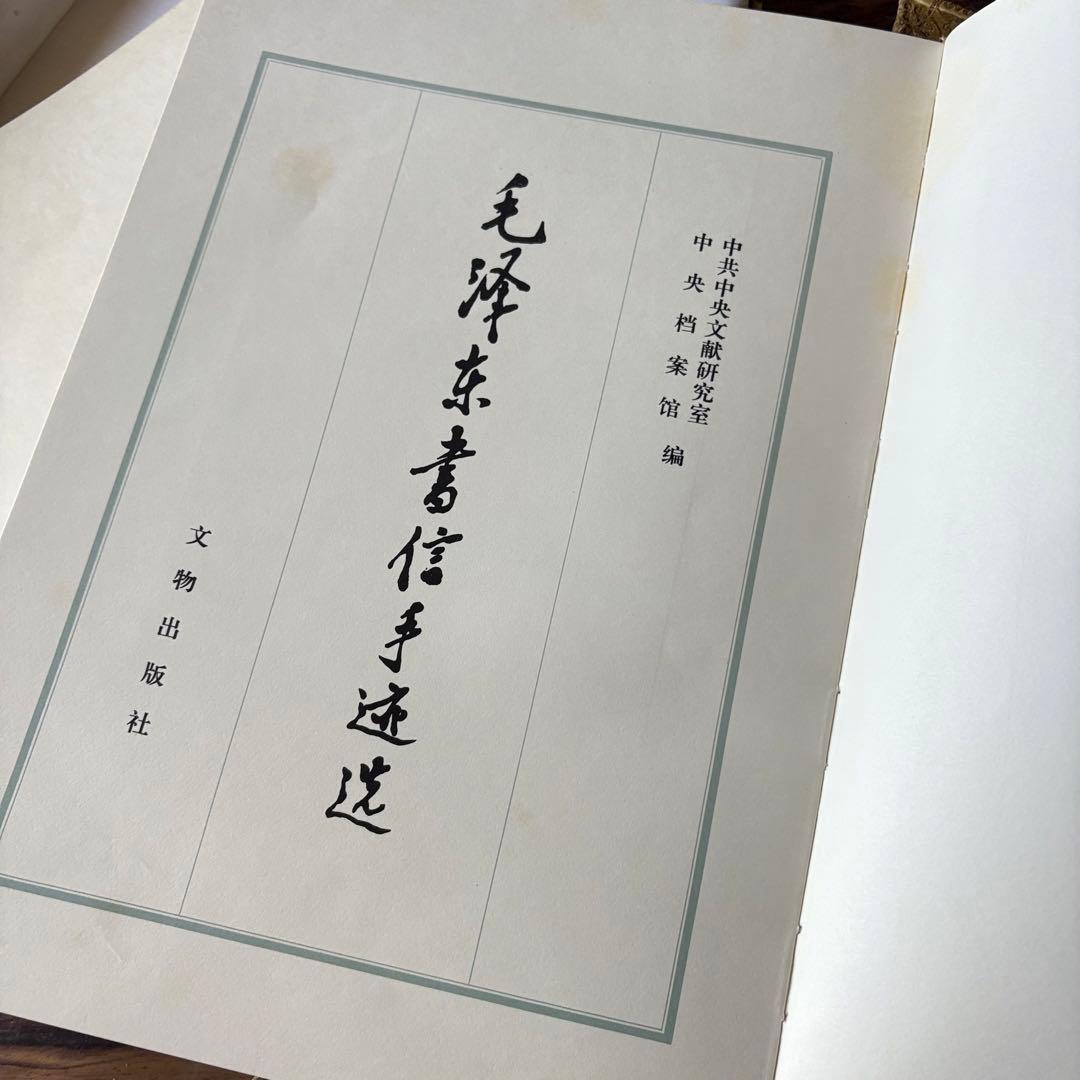 中共中央文献研究室
中央档案馆编
毛泽东书信手迹选
文物出版社